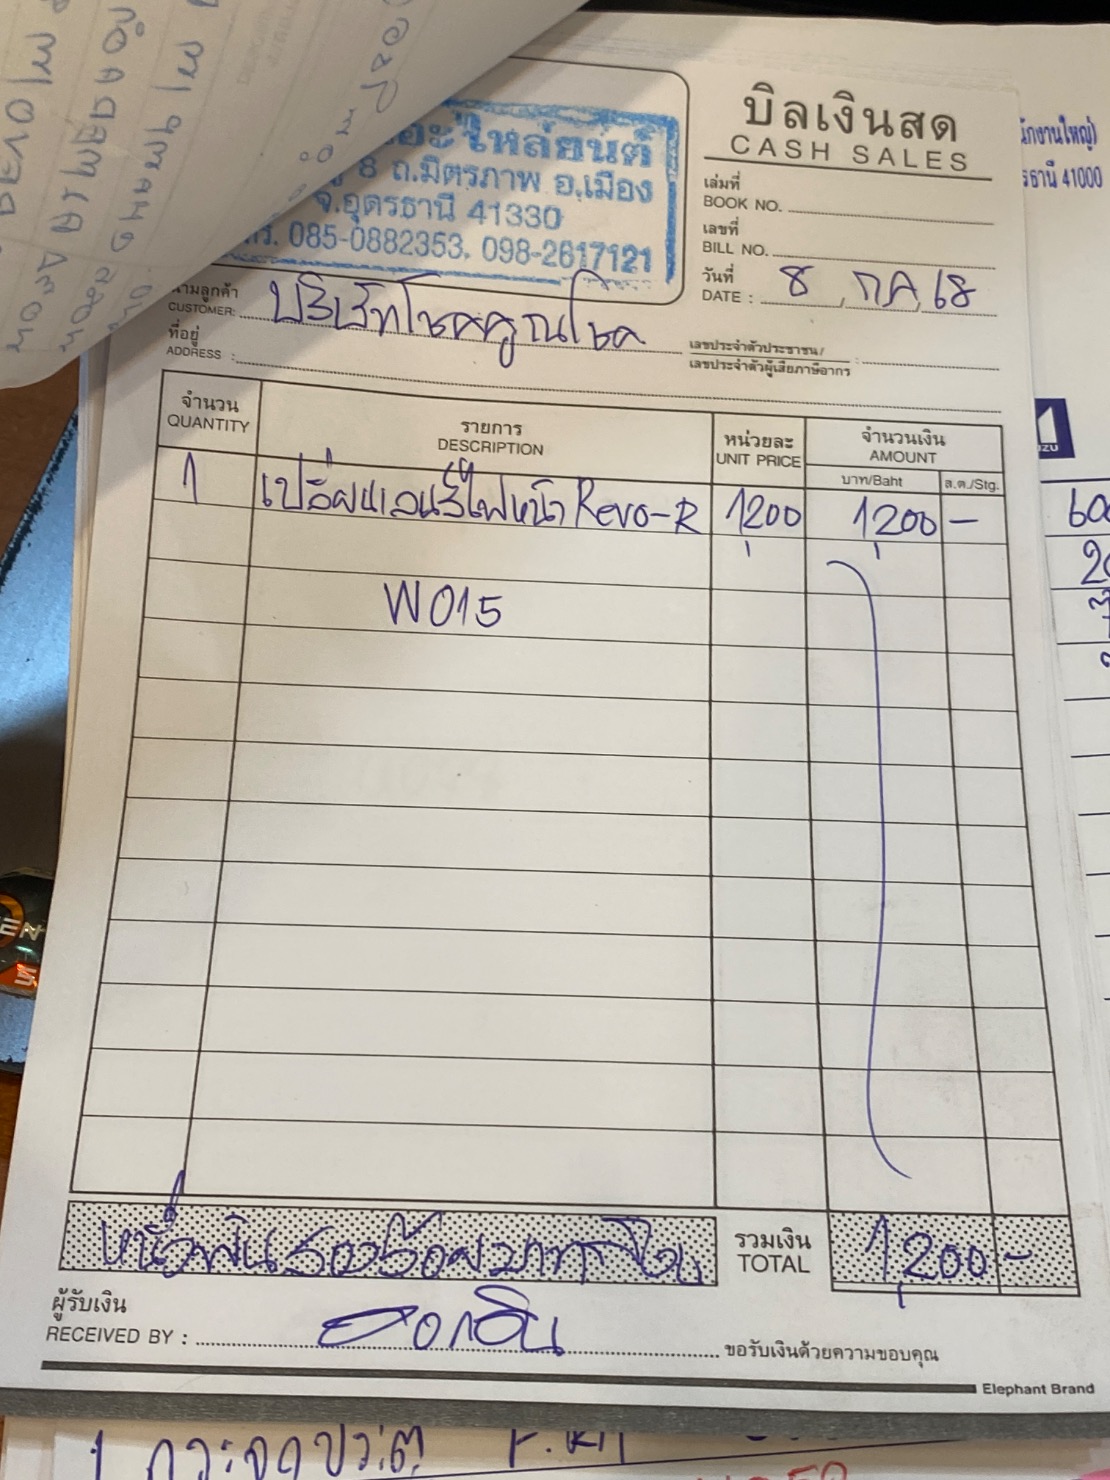 บิลเงินสด
CASH SALES
อะไหล่ยนต์
8 ถ.มิตรภาพ อ.เมือง
จ.อุดรธานี 41330
โทร. 085-0882353, 098-2617121
เล่มที่
BOOK NO.
เลขที่
BILL NO.
วันที่
DATE : 8 กค 68
นามลูกค้า
CUSTOMER: บริษัทโชคคูณโชค
ที่อยู่
ADDRESS :
เลขประจำตัวประชาชน/
เลขประจำตัวผู้เสียภาษีอากร :
จำนวน รายการ หน่วยละ จำนวนเงิน
QUANTITY DESCRIPTION UNIT PRICE AMOUNT
บาท/Baht ส.ต./Stg.
1 เปลี่ยนเลนส์ไฟหน้า Revo-R 1,200 1,200 -
W015
หนึ่งพันสองร้อยบาท รวมเงิน 1,200 -
TOTAL
ผู้รับเงิน
RECEIVED BY : ขอรับเงินด้วยความขอบคุณ
Elephant Brand
ักงานใหญ่)
รธานี 41000